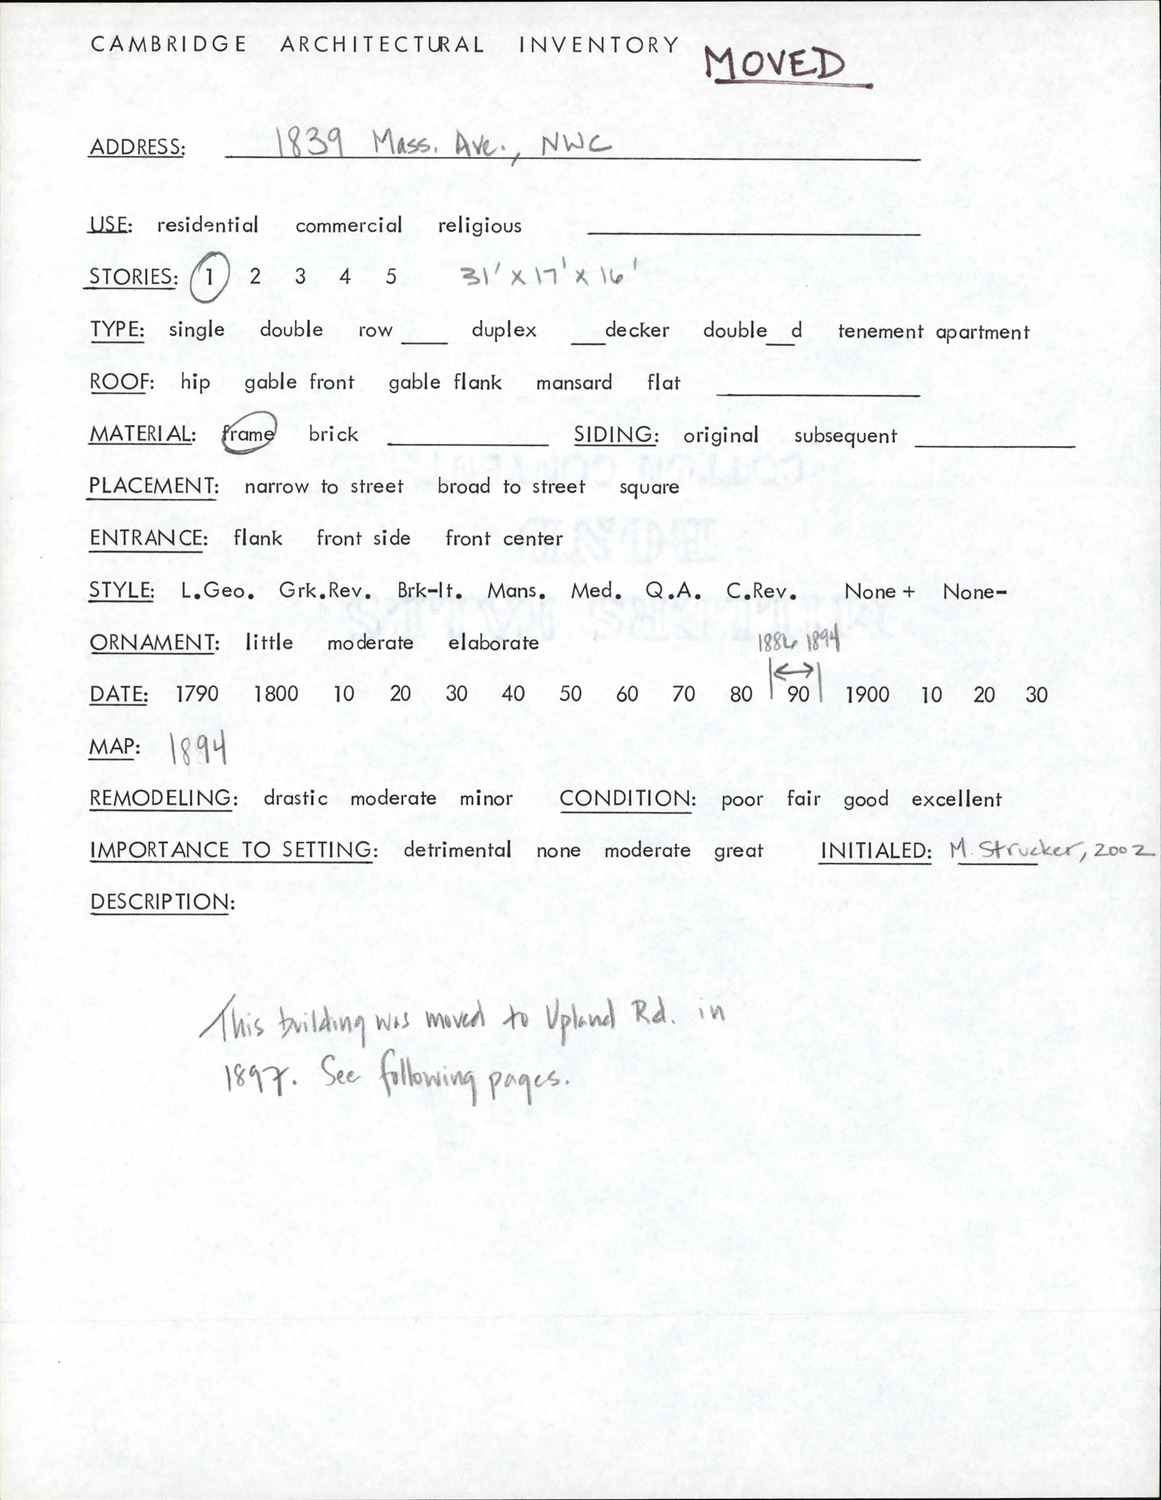 CAMBRIDGE ARCHITECTURAL INVENTORY MOVED
ADDRESS: 1839 Mass. Ave., NWC
USE: residential commercial religious
STORIES: 1 2 3 4 5 31' x 17' x 16'
TYPE: single double row ___ duplex ___decker double__d tenement apartment
ROOF: hip gable front gable flank mansard flat
MATERIAL: frame brick ___ SIDING: original subsequent ___
PLACEMENT: narrow to street broad to street square
ENTRANCE: flank front side front center
STYLE: L.Geo. Grk.Rev. Brk-It. Mans. Med. Q.A. C.Rev. None + None-
ORNAMENT: little moderate elaborate 1886 1894
DATE: 1790 1800 10 20 30 40 50 60 70 80 90 1900 10 20 30
MAP: 1894
REMODELING: drastic moderate minor CONDITION: poor fair good excellent
IMPORTANCE TO SETTING: detrimental none moderate great INITIALED: M. Strucker, 2002
DESCRIPTION:
This building was moved to Upland Rd. in
1897. See following pages.